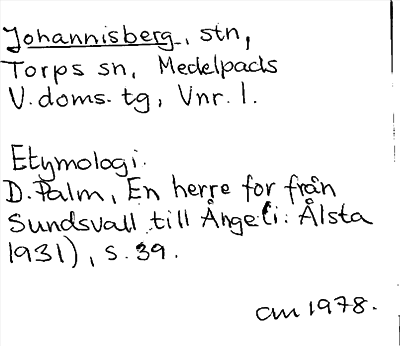 Johannisberg, stn,
Torps sn, Medelpads
V. doms. tg, Vnr. 1.
Etymologi.
D. Palm, En herre for från
Sundsvall till Ånge (i: Ålsta
1931), s. 39.
am 1978.